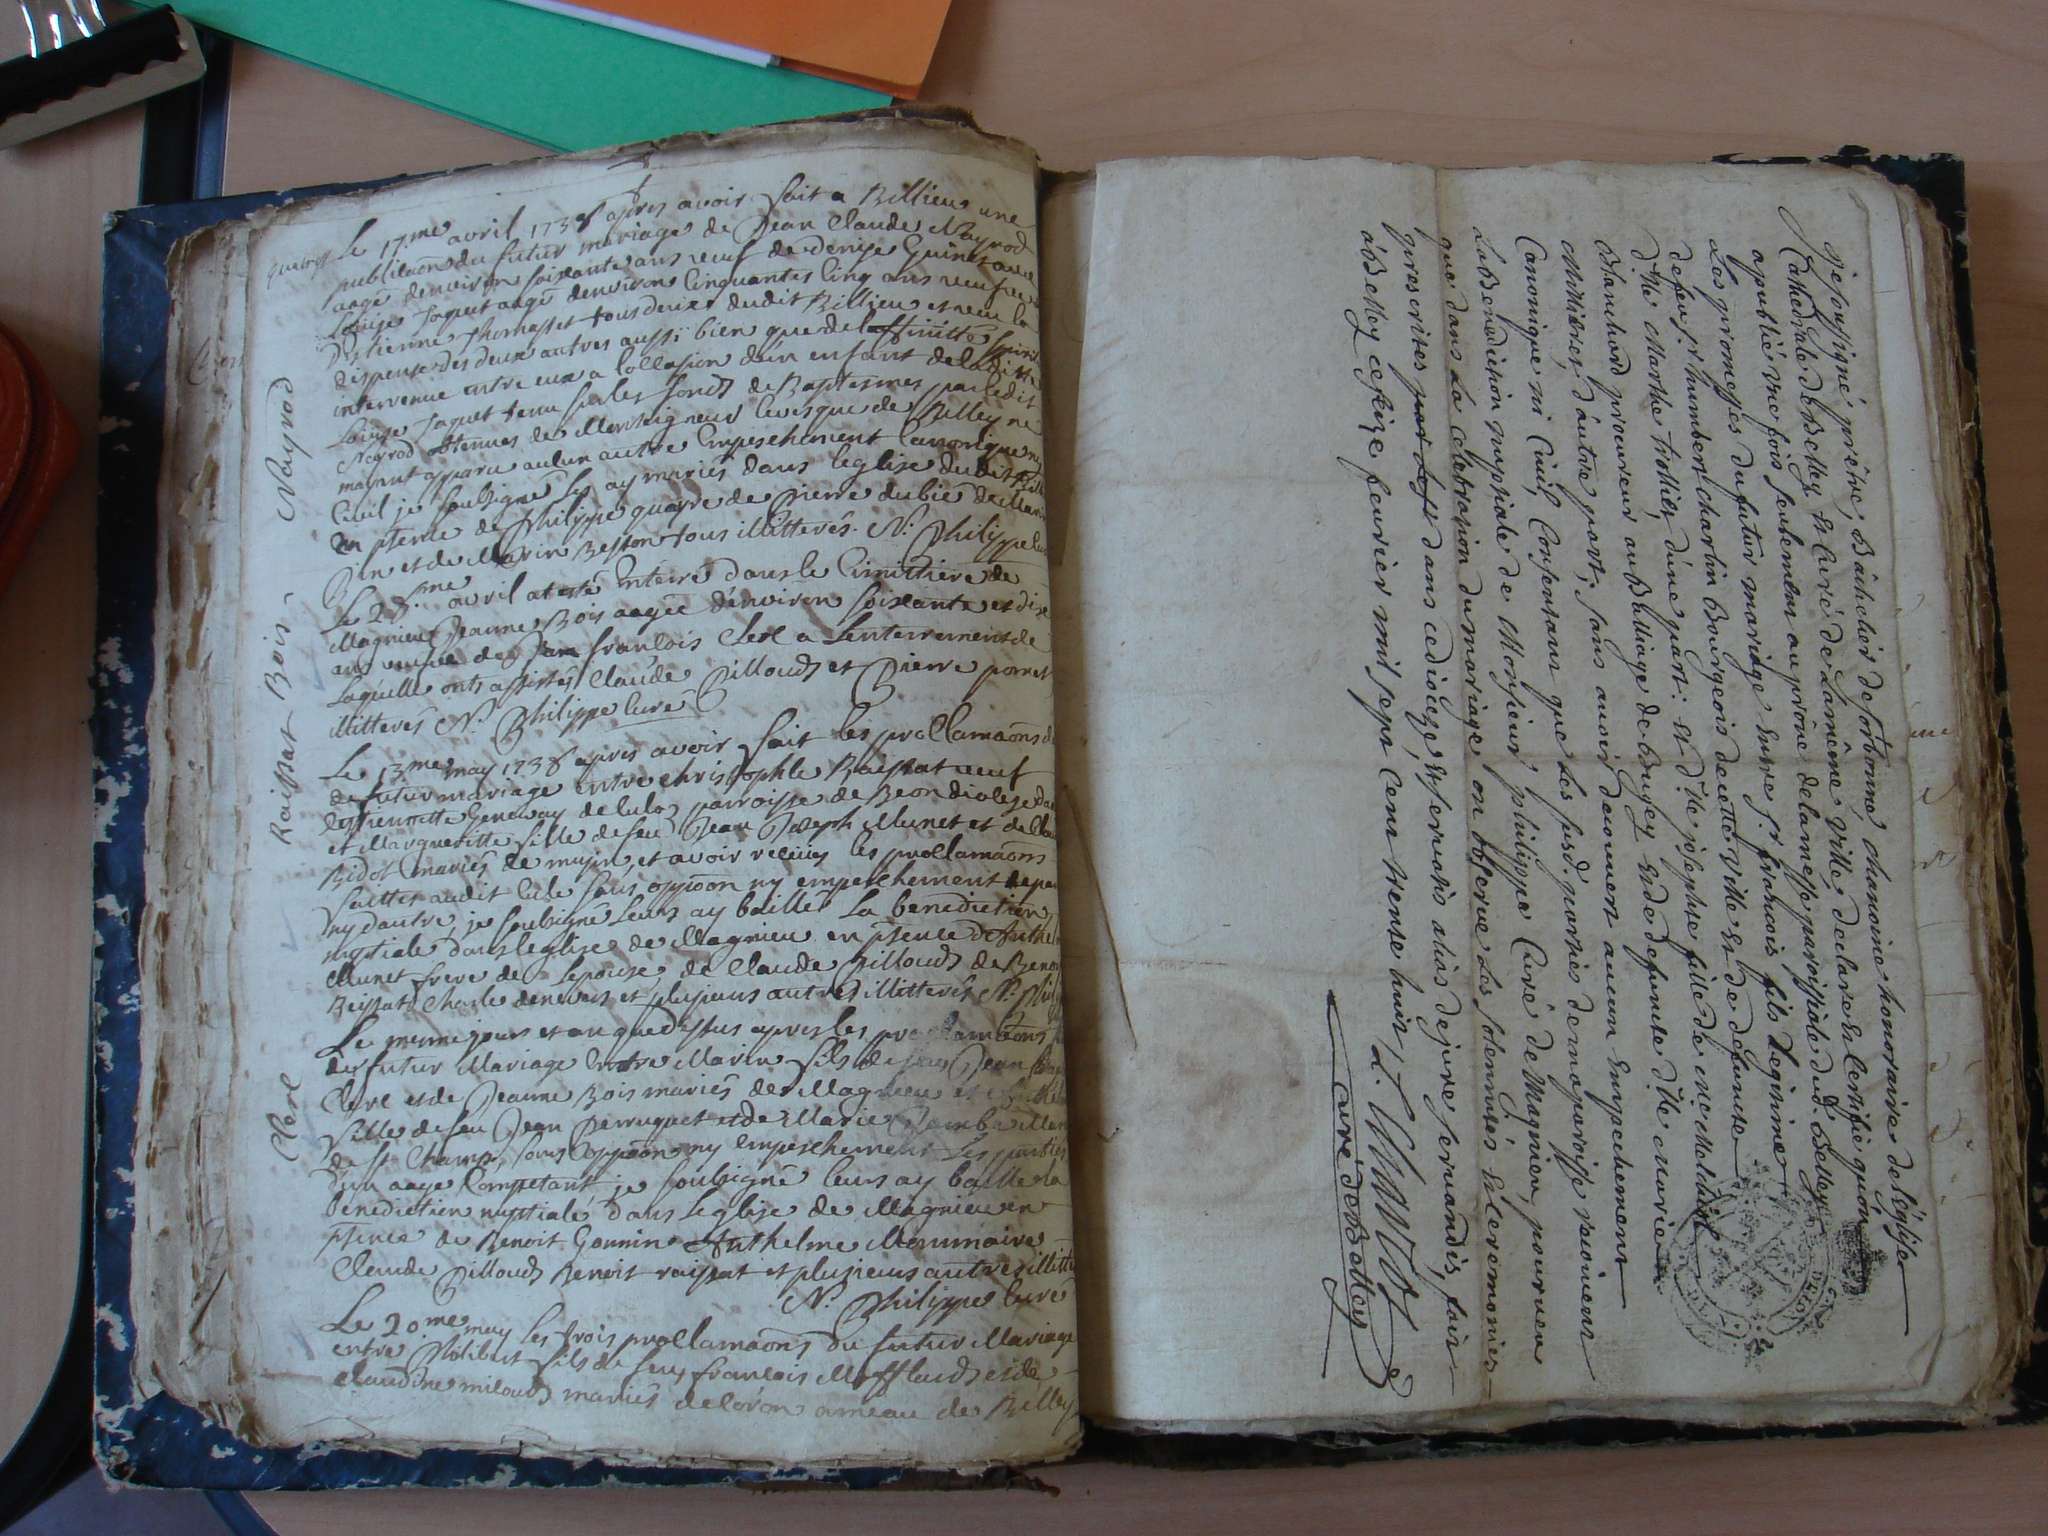 Le 17.me avril 1738 apres avoir fait a Billieu une
publication du futur mariage de Jean Claude Nayrod
aagé denviron soixante ans veuf de denyse Guinet avec
Louise Jaquet aagé denviron Cinquantes Cinq ans veufve
Destienne Thomasset tous deux dudit Billieu et veu la
dispense des deux autres aussi bien que de laffinitté
intervenue entre eux a loccasion dun enfant de laditte
Louise Jaquet tenu sur les fonds de Baptesmes par ledit
Neyrod obtenues de Monseigneur levesque de Belley ne
mayant apparu aulcun autre Empeschement Canonique ny
Civil je soubsigné les ay mariés dans leglise dudit
en psence de Philippe quayre de Pierre dubié de
et de Marin Beston tous illitterés. N. Philippe
Nayrod
Le 28.me avril at esté Enterré dans le Cimittiere de
Magnieu Jeanne Bois aagée denviron soixante et dix
ans veufve de francois Clerc a Lenterrement de
Laquelle onts assistés Claude Pilloud et Pierre
illitterés N. Philippe curé
Bois
Le 13.me may 1738 apres avoir fait les procllamaõns
de futur mariage entre Christophle Raissat veuf
destiennette Geneway de culoz parroisse de Beon
et Margueritte fille de feu Jean Joseph Munet et de
Bidot mariés de et avoir receües les procllamaõns
faittes audit lieu sans oppõon ny empeschement
ny dautre, je soubsigné Leurs ay baillé La benediction
nuptiale dans leglise de Magnieu en psence
Munet frere de Lepouse, de Claude Pilloud de
Reissat Charle deneveis et plusieurs autres illitterés N.
Raissat
Le mesme jours et an que dessus apres les procllamaõns
de futur Mariage entre Marin fils de feu Jean
Clerc et de Jeanne Bois mariés de Magnieu et
fille de feu Jean Perruquet et de Marie
de St Champ, sans oppõon ny Empeschement Les parties
dun aage Competant je soubsigné leurs ay baillé la
benediction nuptiale dans Leglise de Magnieu en
psence de Benoit Gonnin Anthelme Monnnaire
Claude Pilloud Benoit raissat et plusieurs autres
N. Philippe curé
Clerc
Le 20.me may les trois procllamaõns du futur Mariage
entre Philibert fils de feu francois et de
Claudine miloud mariés de ameau de Belley
je soussigné, prêtre, Bachelier de sorbonne, chanoine honoraire de l'église
Cathedrale de Belley, et Curé de La même Ville, declare et Certifie quon
a publié une fois seulement au prône de la messe paroissiale dud. Belley
Les promesses du futur mariage entre s.r francois fils Legitime
de feu s.r humbert charlin Bourgeois de cette Ville et de defunte
d.lle Marthe trollier d'une part: et d.lle josephte fille de
Blanchard procureur au Bailliage de Bugey et de defunte d.lle marie
Millieret d'autre part; sans avoir decouvert aucun Empechement
Canonique ni Civil, Consentant que Les susd. parties de ma paroisse recoivent
La Benediction nuptiale de Monsieur philippe Curé de Magnieu, pourveu
que dans La celebration du mariage on observe Les solennités et ceremonies
prescrites dans ce diocèze, et servatis aliis de jure servandis, fait
à Belley ce seize fevrier mil sept Cent trente huit,
curé de Belley